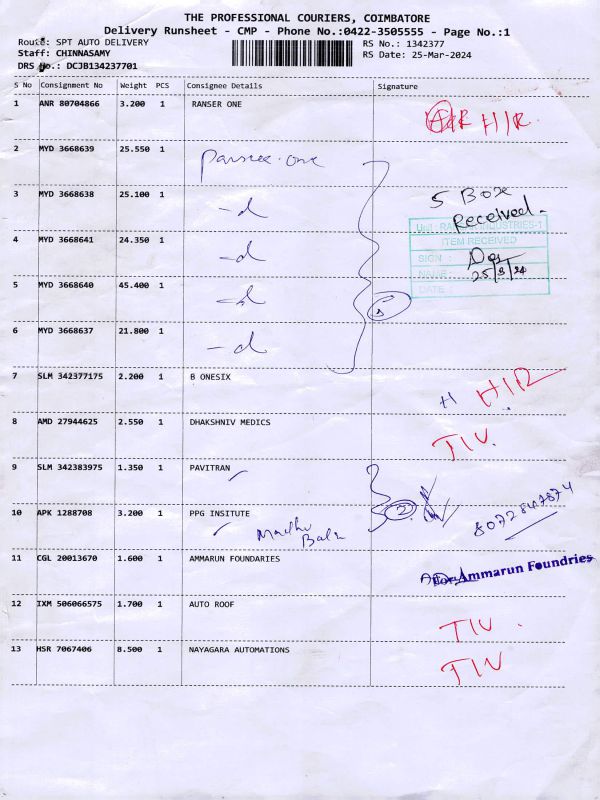 THE PROFESSIONAL COURIERS, COIMBATORE
Delivery Runsheet - CMP - Phone No.:0422-3505555 - Page No.:1
Route: SPT AUTO DELIVERY
RS No.: 1342377
Staff: CHINNASAMY
RS Date: 25-Mar-2024
DRS No.: DCJB134237701
S No Consignment No Weight PCS Consignee Details Signature
1 ANR 80704866 3.200 1 RANSER ONE
H/R.
2 MYD 3668639 25.550 1
3 MYD 3668638 25.100 1 -d
5 Box
Received.
ITEM RECEIVED
4 MYD 3668641 24.350 1 -d
SIGN :
NAME :
25/3/24
DATE :
5 MYD 3668640 45.400 1 -d
6 MYD 3668637 21.800 1 -d
7 SLM 342377175 2.200 1 B ONESIX
H H/R
8 AMD 27944625 2.550 1 DHAKSHNIV MEDICS
TIV.
9 SLM 342383975 1.350 1 PAVITRAN
10 APK 1288708 3.200 1 PPG INSITUTE
2
Madhu
Bala
11 CGL 20013670 1.600 1 AMMARUN FOUNDARIES
For Ammarun Foundries
12 IXM 506066575 1.700 1 AUTO ROOF
TIV
13 HSR 7067406 8.500 1 NAYAGARA AUTOMATIONS
TIV